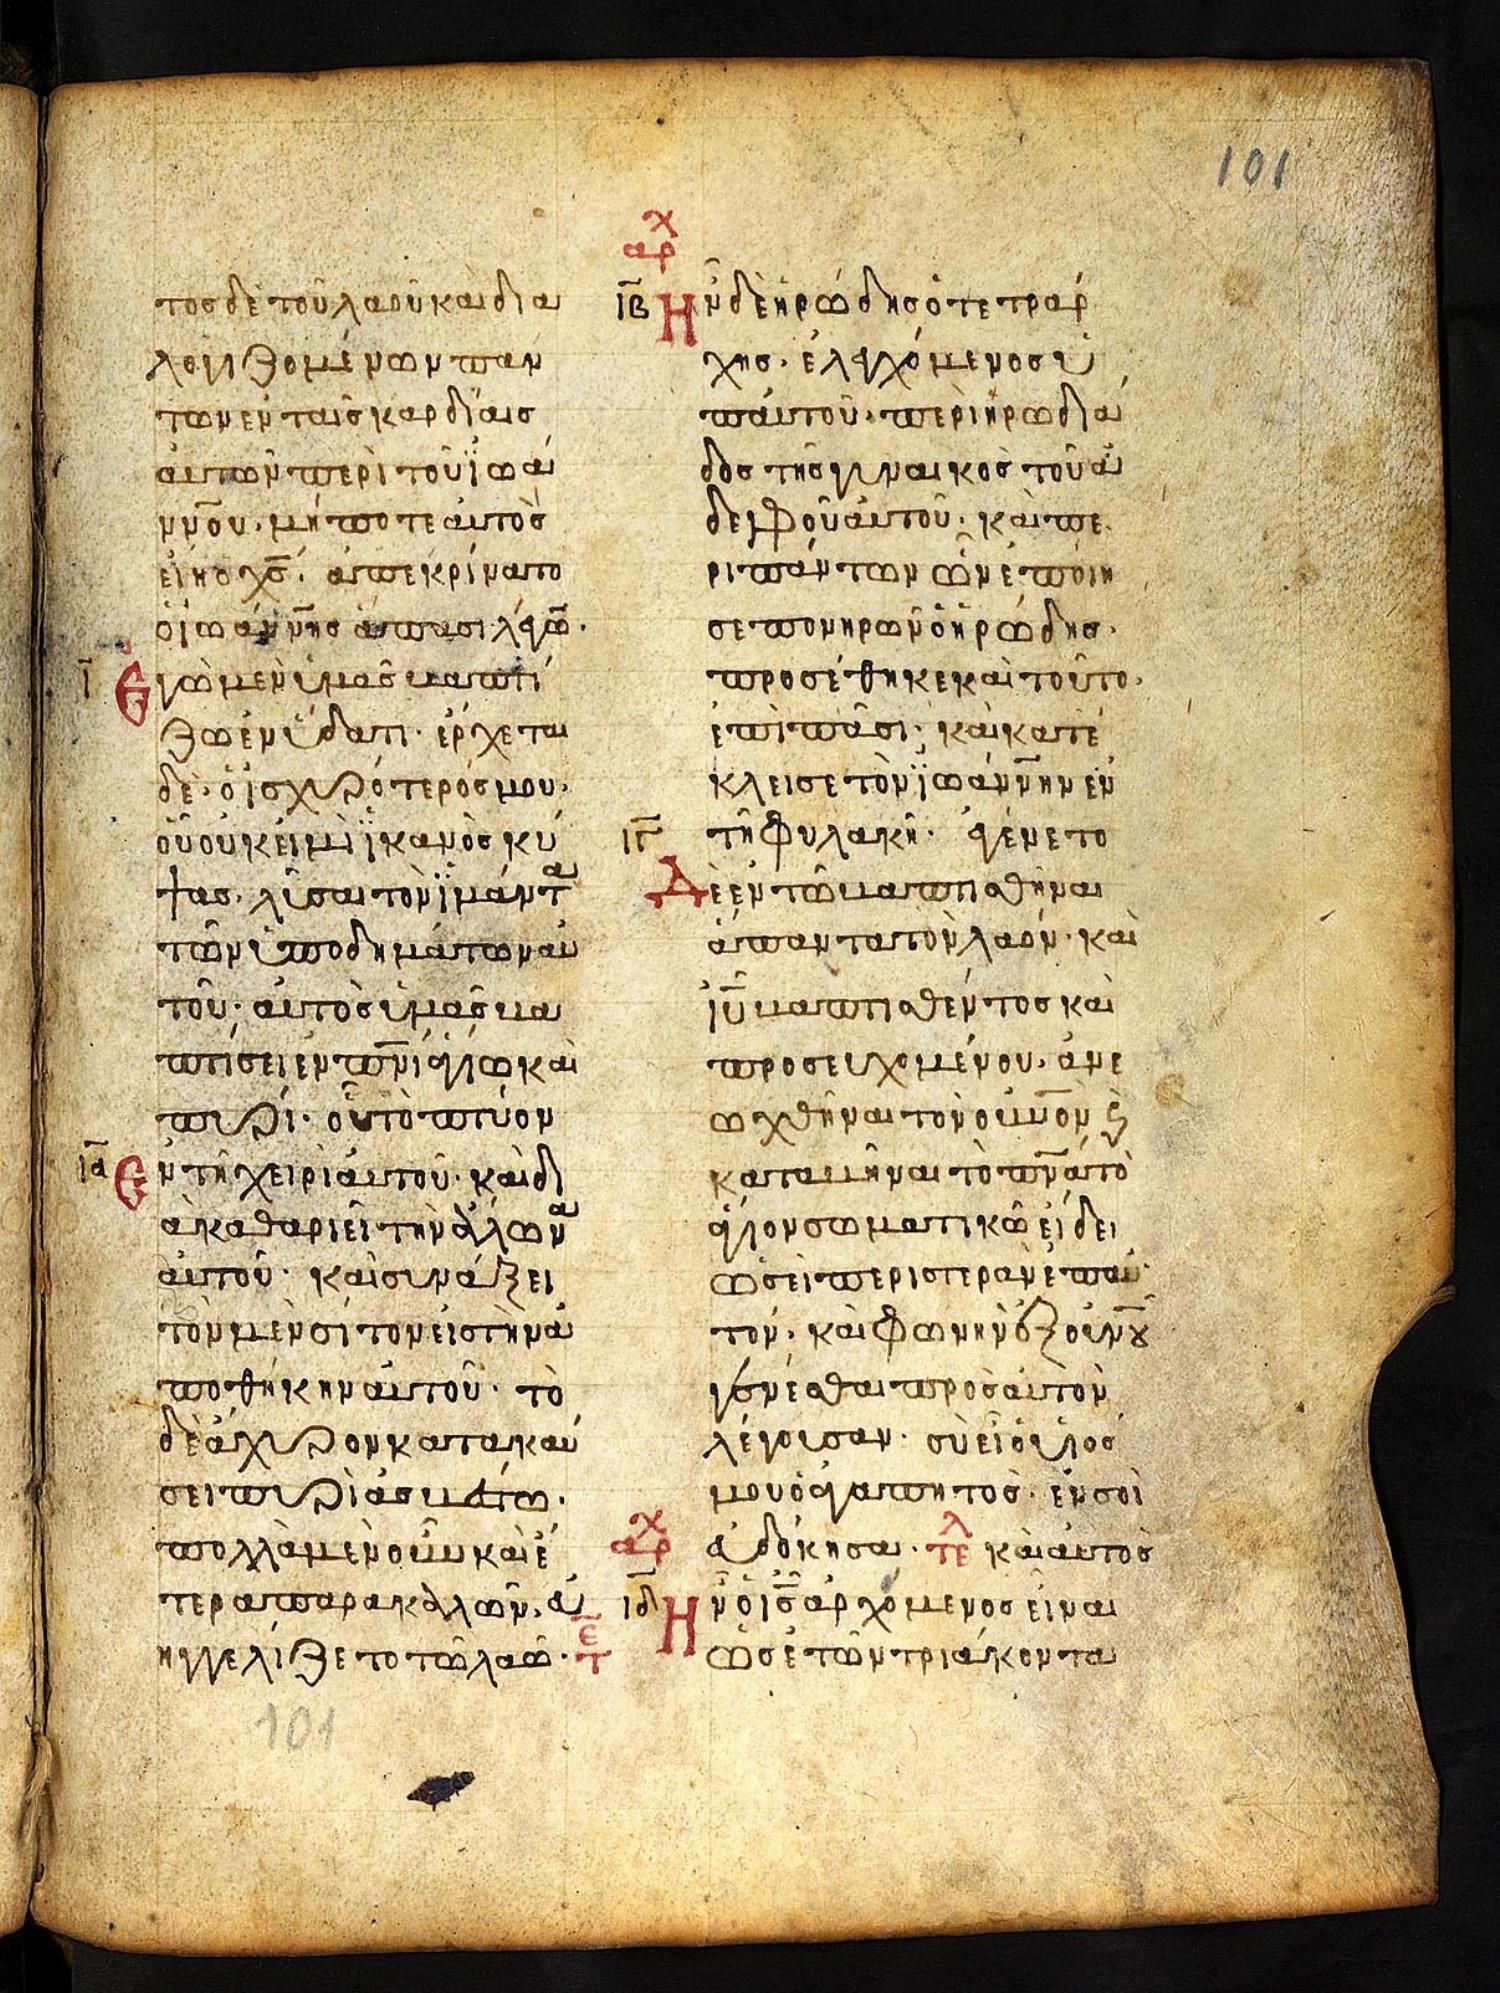 101
τος δὲ τοῦ λαοῦ καὶ δια
λογιζομένων παν
των ἐν ταῖς καρδίαις
αὐτῶν περὶ τοῦ ϊωά
ννου· μήποτε αὐτὸς
εἴη ὁ χς· ἀπεκρίνατο
ὁ ἰωάννης ἅπασι λέγων·
ι Ἐγὼ μὲν ὑμᾶς βαπτί
ζω ἐν ὕδατι· ἔρχεται
δὲ· ὁ ἰσχυρότερός μου·
οὗ οὐκ εἰμὶ ϊκανὸς κύ
ψας· λῦσαι τὸν ϊμάντα
τῶν ὑποδημάτων αὐ
τοῦ· αὐτὸς ὑμᾶς βα
πτίσει ἐν πνι ἁγίω καὶ
πυρί· οὗ τὸ πτύον
ια Ἐν τῆ χειρὶ αὐτοῦ· καὶ δι
ακαθαριεῖ τὴν ἅλωνα
αὐτοῦ· καὶ συνάξει
τὸν μὲν σίτον εἰς τὴν ἀ
ποθήκην αὐτοῦ· τὸ
δὲ ἄχυρον κατακαύ
σει πυρὶ ἀσβέστω·
πολλὰ μὲν οὖν καὶ ἕ
τερα παρακαλῶν, εὐ
ηγγελίζετο τῶ λαῶ· ετ
101
αρχ
ιβ Ἦν δὲ ἡρώδης ὁ τετράρ
χης· ἐλεγχόμενος ὑ
π' αὐτοῦ· περὶ ἡρωδιά
δος τῆς γυναικὸς τοῦ ἀ
δελφοῦ αὐτοῦ· καὶ πε
ρι πάντων ὧν ἐποίη
σε πονηρῶν ὁ ἡρώδης·
προσέθηκε καὶ τοῦτο·
ἐπὶ πᾶσι· καὶ κατέ
κλεισε τὸν ϊωάννην ἐν
ιγ τῆ φυλακῆ· ἐγένετο
Δὲ ἐν τῶ βαπτισθῆναι
ἅπαντα τὸν λαόν· καὶ
ἰυ βαπτισθέντος καὶ
προσευχομένου· ἀνε
ωχθῆναι τὸν οὐνον ϗ
καταβῆναι τὸ πνα τὸ
ἅγιον σωματικῶ εἴδει
ὡσεὶ περιστερὰν ἐπ' αὐ
τόν· καὶ φωνὴν ἐξ οὐνοῦ
γενέσθαι πρὸς αὐτὸν
λέγουσαν· σὺ εἶ ὁ υἱός
μου ὁ ἀγαπητὸς· ἐν σοὶ
αρχ εὐδόκησα· τελ καὶ αὐτὸς
ιδ Ἦν ὁ ις ἀρχόμενος εἶναι
ὡσὲ τῶν τριάκοντα